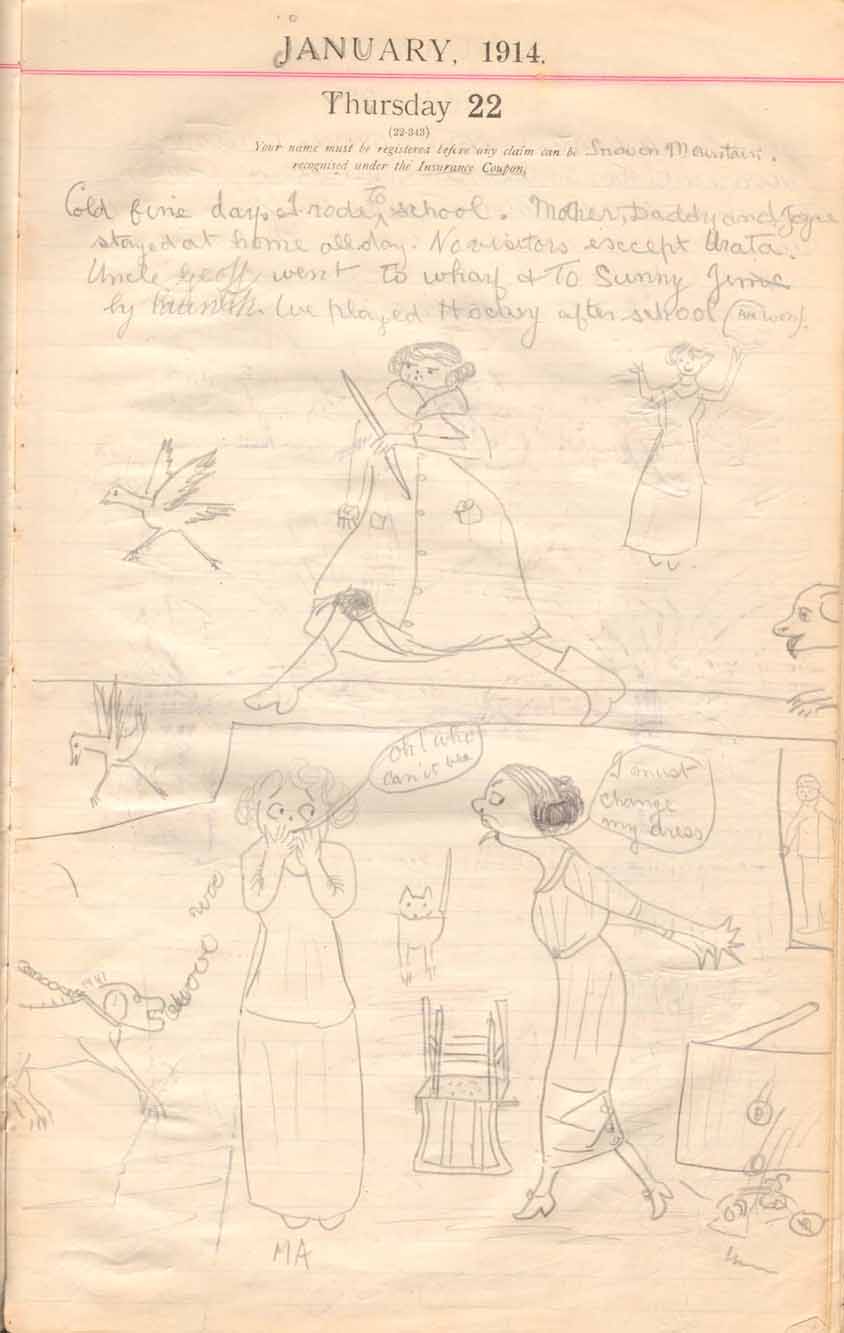 JANUARY, 1914.
Thursday 22
(22-343)
Your name must be registered before any claim can be Snow on Mountain.
recognised under the Insurance Coupon.
Cold fine day. I rode to school. Mother, Daddy and Joyce
stayed at home all day. No visitors esecept Urata.
Uncle Geoff went to wharf & To Sunny
by We played Hockey after school
Oh! who
can it be
I must
change
my dress
woo
MA